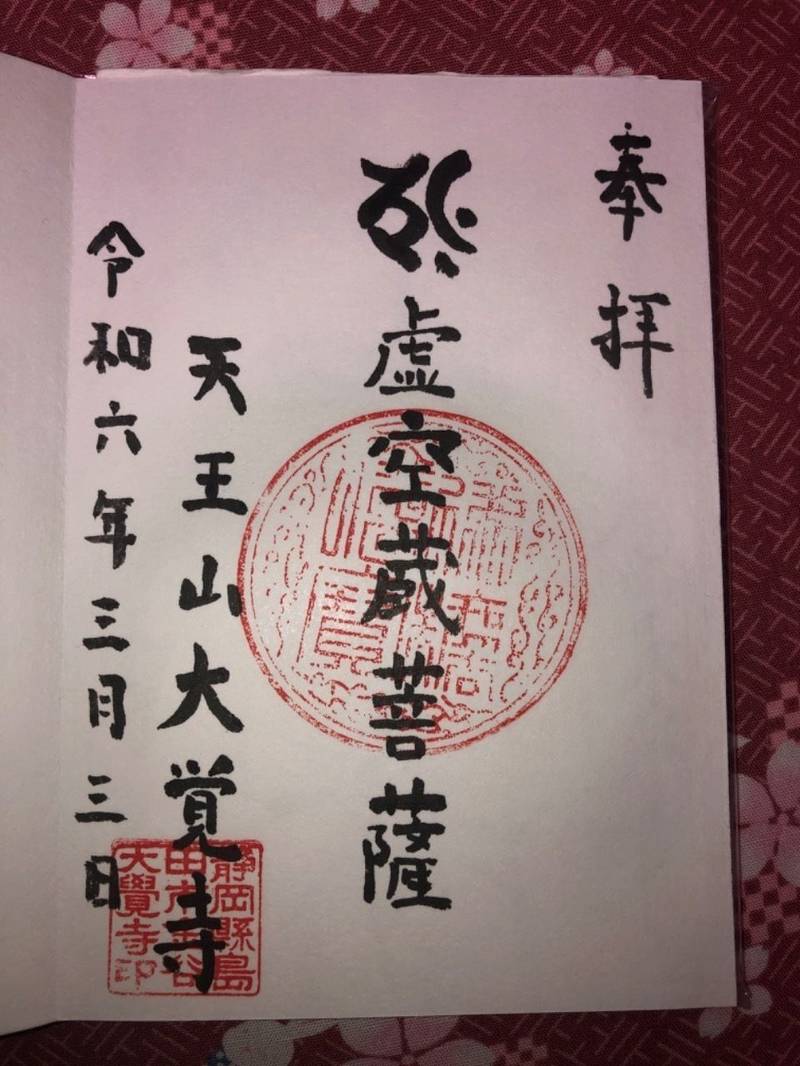 奉拝
虚空蔵菩薩
天王山大覚寺
令和六年三月三日
静岡縣島
田市金谷
大覺寺印